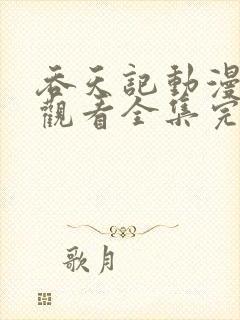 吞天記動漫
觀看全集完
歌月